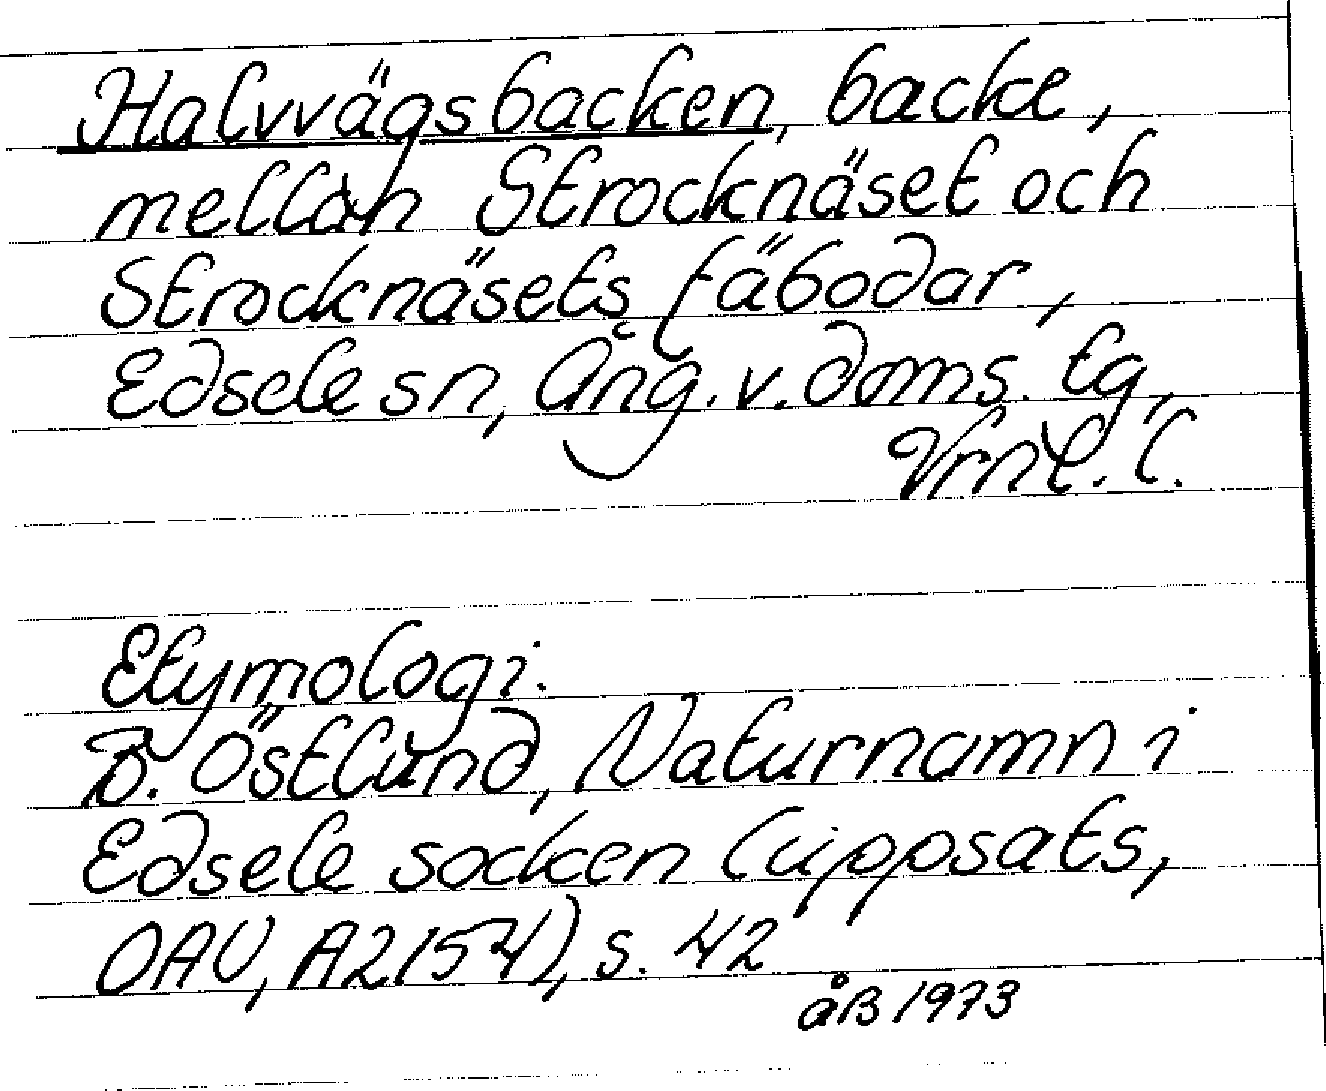 Halvvägsbacken, backe,
mellan Strocknäset och
Strocknäsets fäbodar,
Edsele sn, Ång. v. doms. tg,
Vrnl. l.
Etymologi.
B. Östlund, Naturnamn i
Edsele socken (uppsats,
OAU, A2154), s. 42
åB 1973